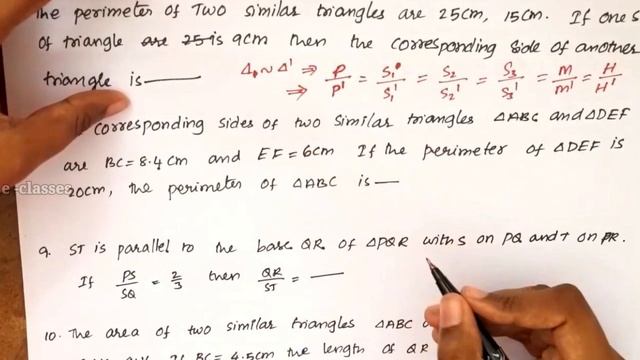 The perimeter of Two similar triangles are 25cm, 15cm. If one s
of triangle are 25 is 9cm then the corresponding side of another
triangle is —— Δ ~ Δ' ⇒ P/P' = S1/S1' = S2/S2' = S3/S3' = M/M' = H/H'
⇒
Corresponding sides of two similar triangles ΔABC and ΔDEF
are BC = 8.4cm and EF = 6cm If the perimeter of ΔDEF is
20cm, the perimeter of ΔABC is —
e-classes
9. ST is parallel to the base QR of ΔPQR with S on PQ and T on PR.
If PS/SQ = 2/3 then QR/ST = ——
10. The area of two similar triangles ΔABC
If BC = 4.5cm the length of QR